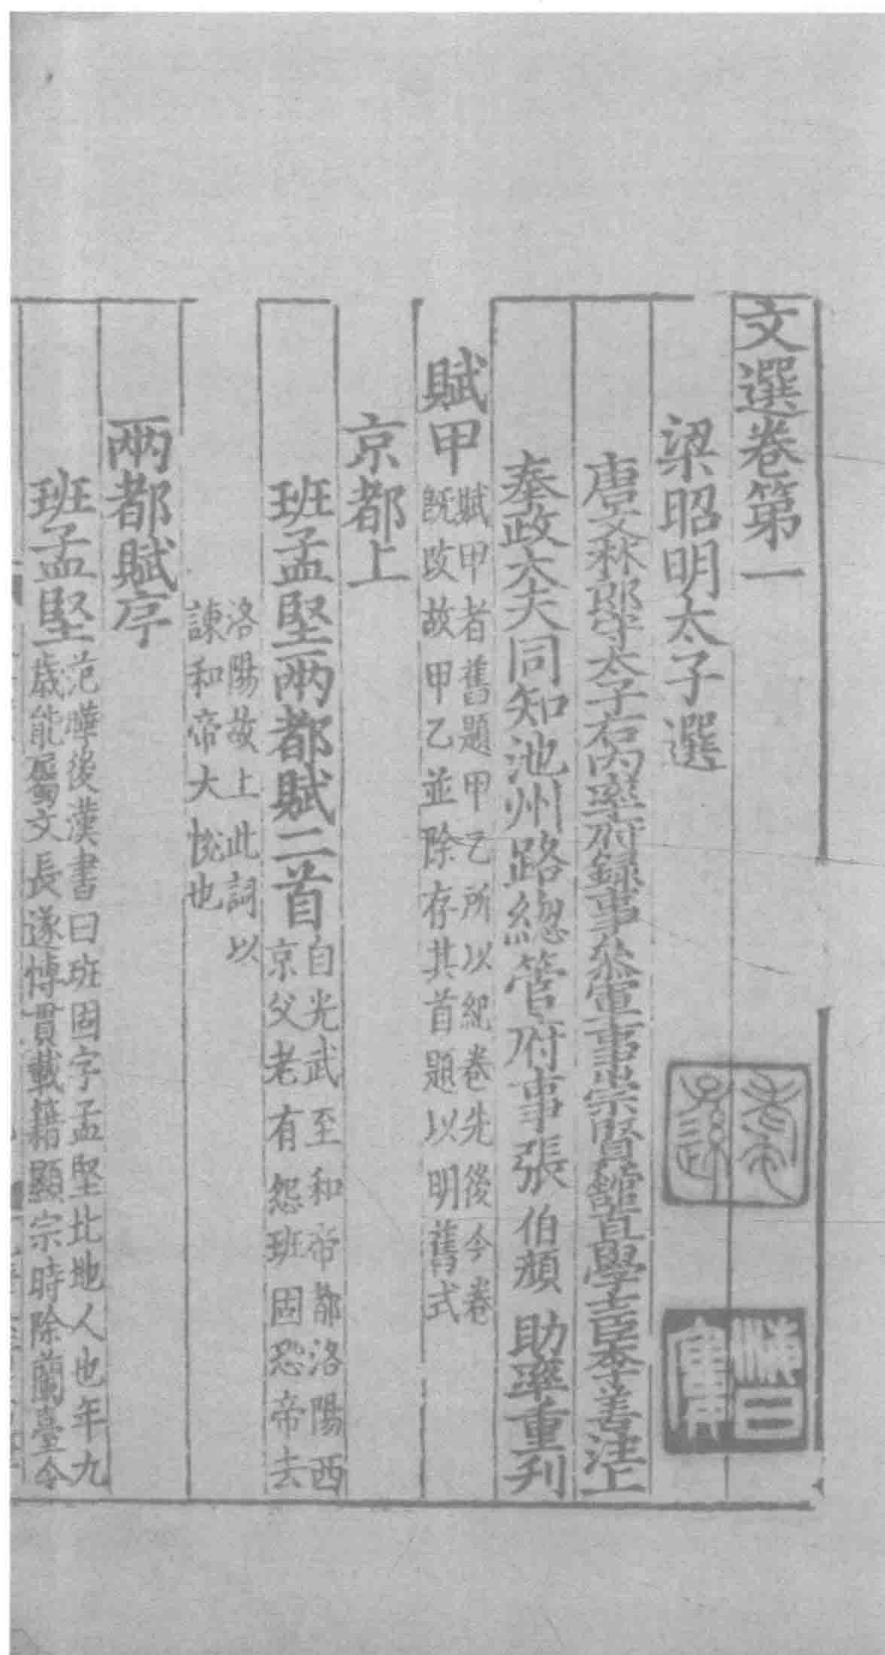 文選卷第一
梁昭明太子選
唐文林郎守太子右内率府録事叅軍事崇賢館直學士臣李善注上
奉政大夫同知池州路總管府事張伯顔助率重刋
賦甲
賦甲者舊題甲乙所以紀卷先後今卷
旣改故甲乙並除存其首題以明舊式
京都上
班孟堅兩都賦二首
自光武至和帝都洛陽西
京父老有怨班固恐帝去
洛陽故上此詞以
諫和帝大悅也
兩都賦序
班孟堅
范曄後漢書曰班固字孟堅北地人也年九
歲能屬文長遂博貫載籍顯宗時除蘭臺令